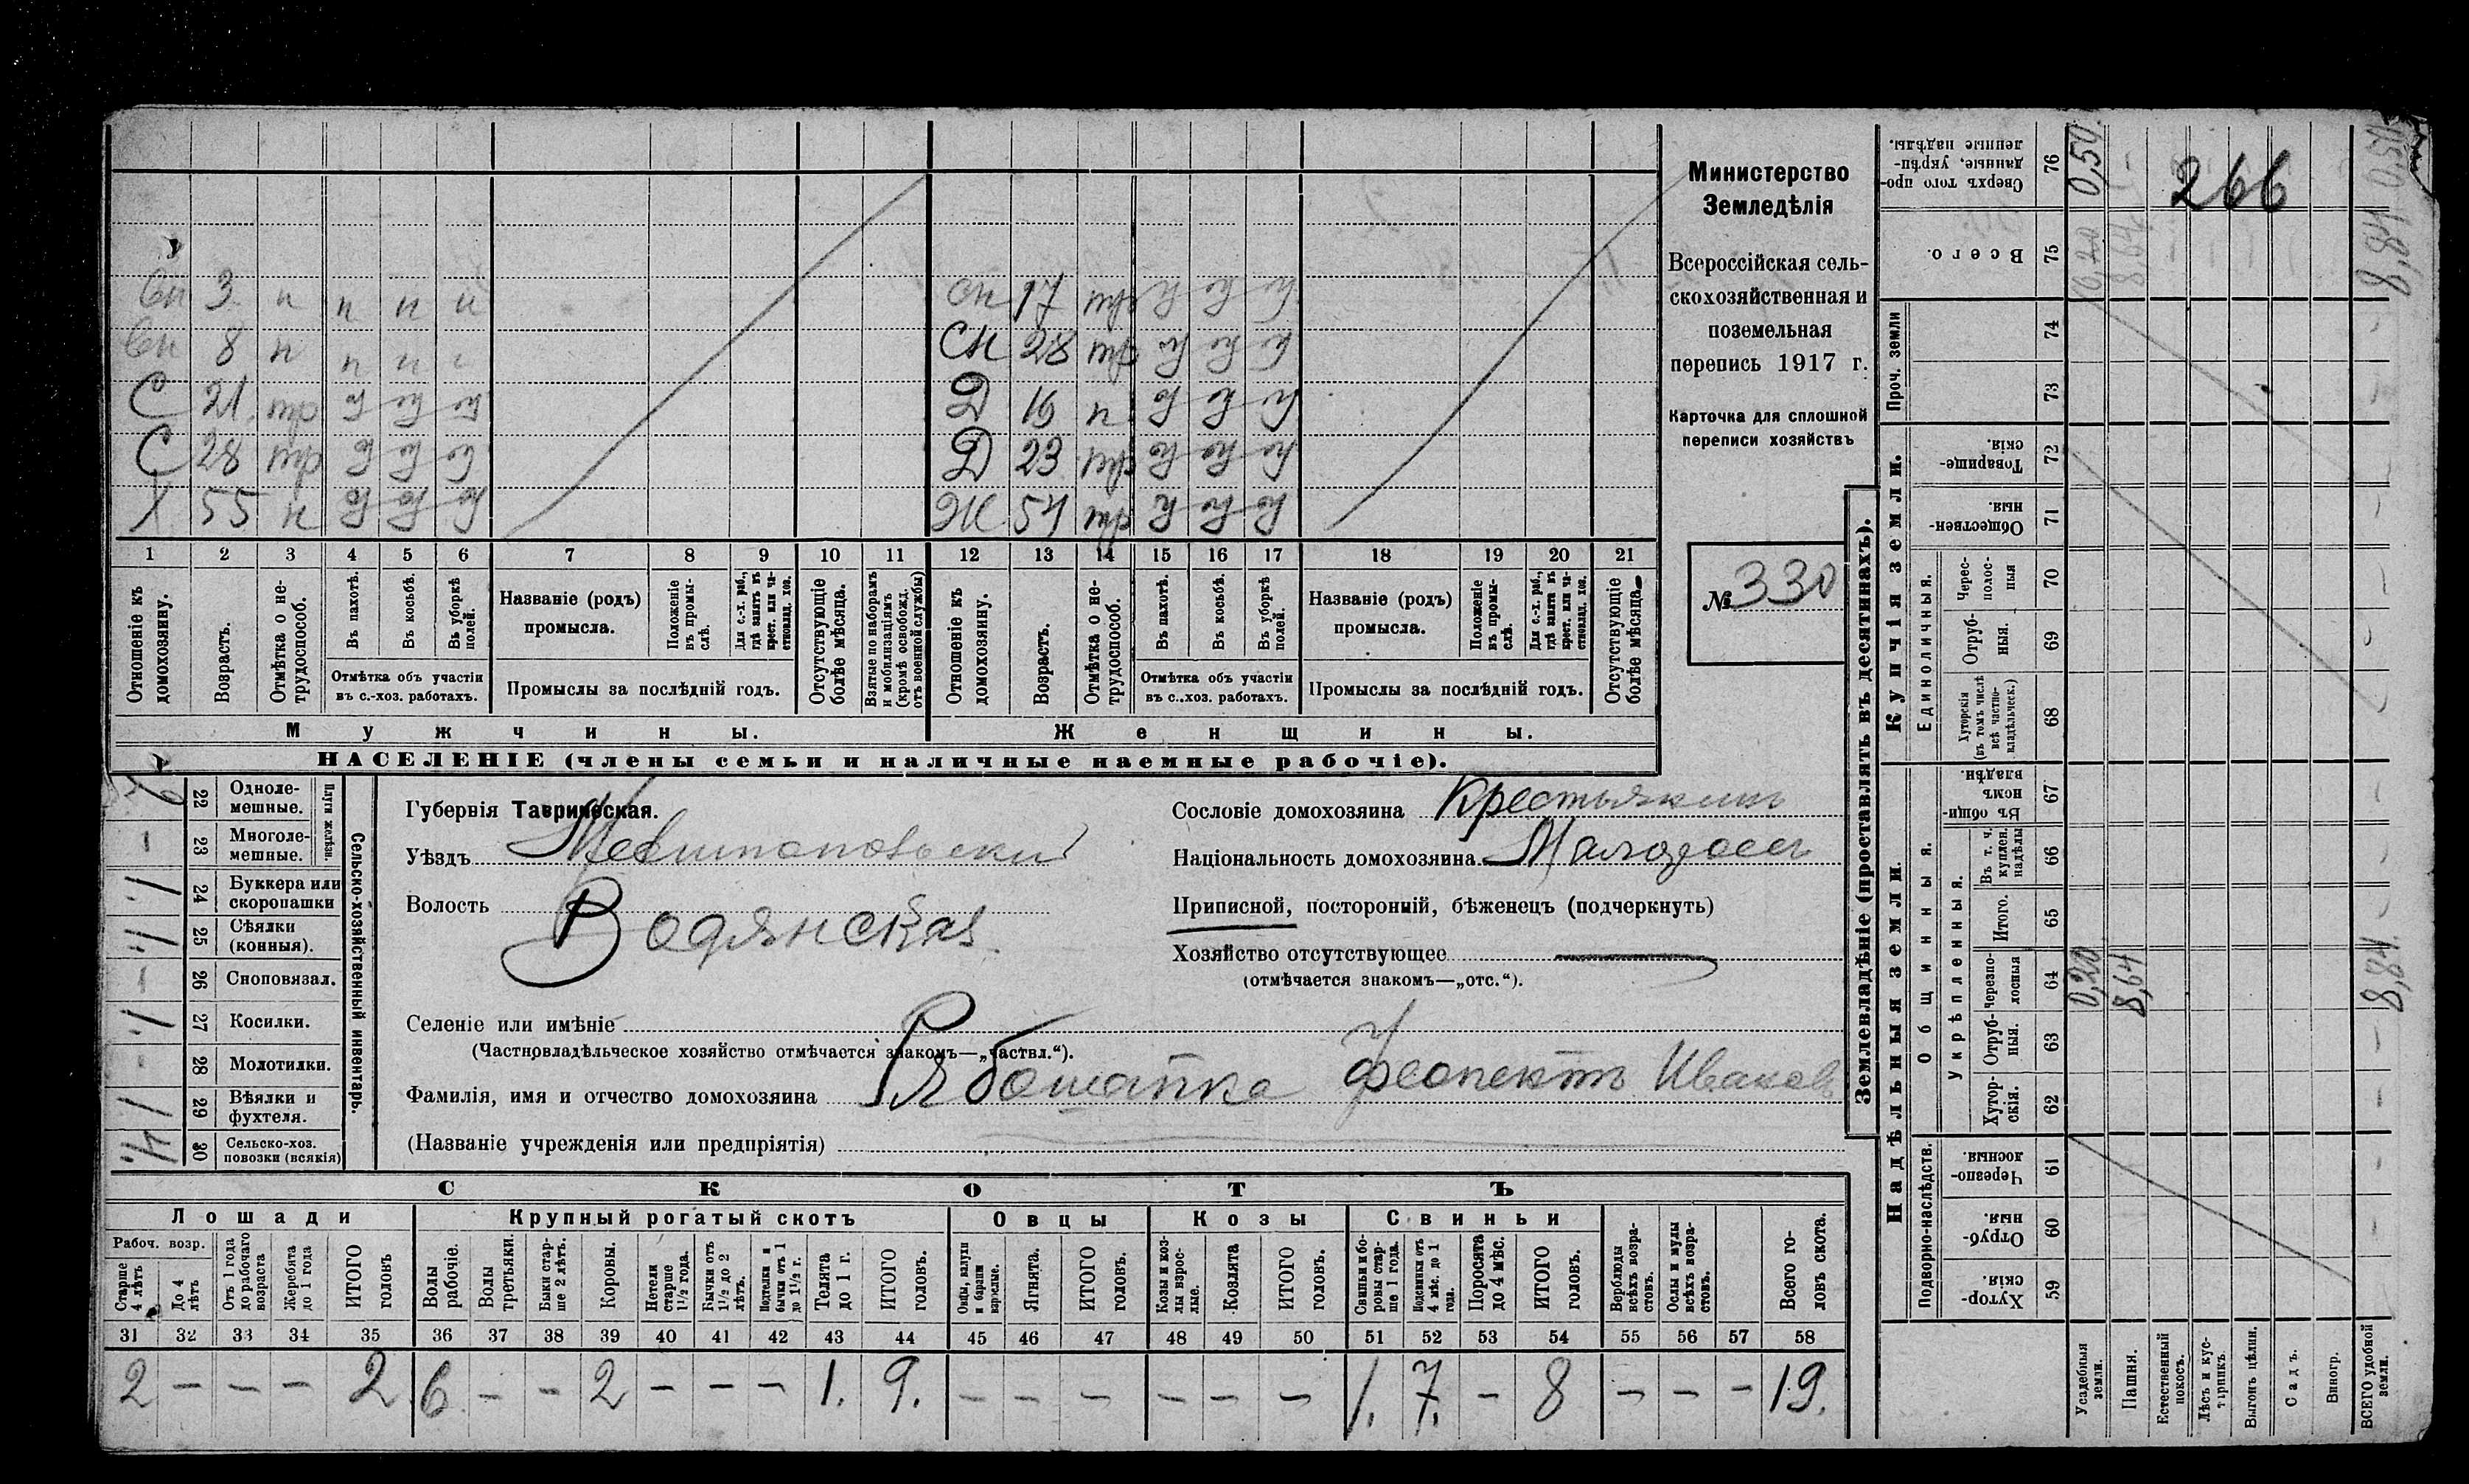 Министерство
Земледѣлія
Всероссійская сель-
скохозяйственная и
поземельная
перепись 1917 г.
Карточка для сплошной
переписи хозяйствъ
№ 330
266
Сн 3 н н н н
Сн 8 н н н
С 21
С 28
Х 55 н
Сн 17
Сн 28
Д 19 н
Д 23
Ж 51
1 2 3 4 5 6 7 8 9 10 11 12 13 14 15 16 17 18 19 20 21
Отношеніе къ домохозяину.
Возрастъ.
Отмѣтка о не-трудоспособ.
Въ пахотѣ.
Въ косьбѣ.
Въ уборкѣ полей.
Отмѣтка объ участіи
въ с.-хоз. работахъ.
Названіе (родъ)
промысла.
Положеніе въ промы-слѣ.
Для с.-х. раб., гдѣ занятъ въ крест. или ча-стновлад. хоз.
Промыслы за послѣдній годъ.
Отсутствующіе болѣе мѣсяца.
Взятые по наборамъ и мобилизаціямъ (кромѣ освобожд. отъ военной службы)
Отношеніе къ домохозяину.
Возрастъ.
Отмѣтка о не-трудоспособ.
Въ пахотѣ.
Въ косьбѣ.
Въ уборкѣ полей.
Отмѣтка объ участіи
въ с.-хоз. работахъ.
Названіе (родъ)
промысла.
Положеніе въ промы-слѣ.
Для с.-х. раб., гдѣ занята въ крест. или ча-стновлад. хоз.
Промыслы за послѣдній годъ.
Отсутствующіе болѣе мѣсяца.
Мужчины.
Женщины.
НАСЕЛЕНІЕ (члены семьи и наличные наемные рабочіе).
Сельско-хозяйственный инвентарь.
Плуги желѣзн.
22 Однолемешные.
23 Многолемешные.
24 Буккера или скоропашки
25 Сѣялки (конныя).
26 Сноповязал.
27 Косилки.
28 Молотилки.
29 Вѣялки и фухтеля.
30 Сельско-хоз. повозки (всякія)
Губернія Таврическая.
Уѣздъ Мелитопольскій
Волость Водянская
Селеніе или имѣніе
(Частновладѣльческое хозяйство отмѣчается знакомъ—„частвл.“).
Фамилія, имя и отчество домохозяина Рябошапка Феопектъ Иванов
(Названіе учрежденія или предпріятія)
Сословіе домохозяина Крестьянинъ
Національность домохозяина Малоросъ
Приписной, посторонній, бѣженецъ (подчеркнуть)
Хозяйство отсутствующее
(отмѣчается знакомъ—„отс.“).
СКОТЪ
Лошади
Крупный рогатый скотъ
Овцы
Козы
Свиньи
Рабоч. возр.
Старше 4 лѣтъ
До 4 лѣтъ
Отъ 1 года до рабочаго возраста
Жеребята до 1 года
ИТОГО головъ
Волы рабочіе.
Волы третьяки.
Быки стар-ше 2 лѣтъ.
Коровы.
Нетели старше 1½ года.
Бычки отъ 1½ до 2 лѣтъ.
Подтелки и бычки отъ 1 до 1½ г.
Телята до 1 г.
ИТОГО головъ.
Овцы, валухи и бараны взрослые.
Ягнята.
ИТОГО головъ.
Козы и коз-лы взрос-лые.
Козлята
ИТОГО головъ.
Свиньи и бо-ровы стар-ше 1 года.
Подсвинки отъ 4 мѣс. до 1 года.
Поросята до 4 мѣс.
ИТОГО головъ.
Верблюды всѣхъ возра-стовъ.
Ослы и мулы всѣхъ возра-стовъ.
Всего го-ловъ скота.
31 32 33 34 35 36 37 38 39 40 41 42 43 44 45 46 47 48 49 50 51 52 53 54 55 56 57 58
2 – – – 2 6 – – 2 – – – 1. 9. – – – – – – 1. 7. – 8 – – – 19.
Землевладѣніе (проставлять въ десятинахъ).
Купчія земли.
Надѣльныя земли.
Проч. земли
Единоличныя.
Общинныя.
Укрѣпленныя.
Подворно-наслѣдств.
76 Сверхъ того про-данные, укрѣп-ленные надѣлы.
75 Всего.
74
73
72 Товарище-скія.
71 Обществен-ныя
70 Черес-полос-ныя
69 Отруб-ныя.
68 Хуторскія (въ томъ числѣ всѣ частно-владѣльческ.)
67 Въ общи-номъ владѣн.
66 Въ т. ч. куплен. надѣлы
65 Итого.
64 Черезпо-лосныя
63 Отруб-ныя.
62 Хутор-скія.
61 Черезпо-лосныя.
60 Отруб-ныя.
59 Хутор-скія.
Усадебныя земли.
Пашня.
Естественный покосъ.
Лѣсъ и кус-тарникъ.
Выгонъ цѣлин.
Садъ.
Виногр.
ВСЕГО удобной земли.
0,50
0,20
8,64
0,20
8,64
8,84
8,84 0,50